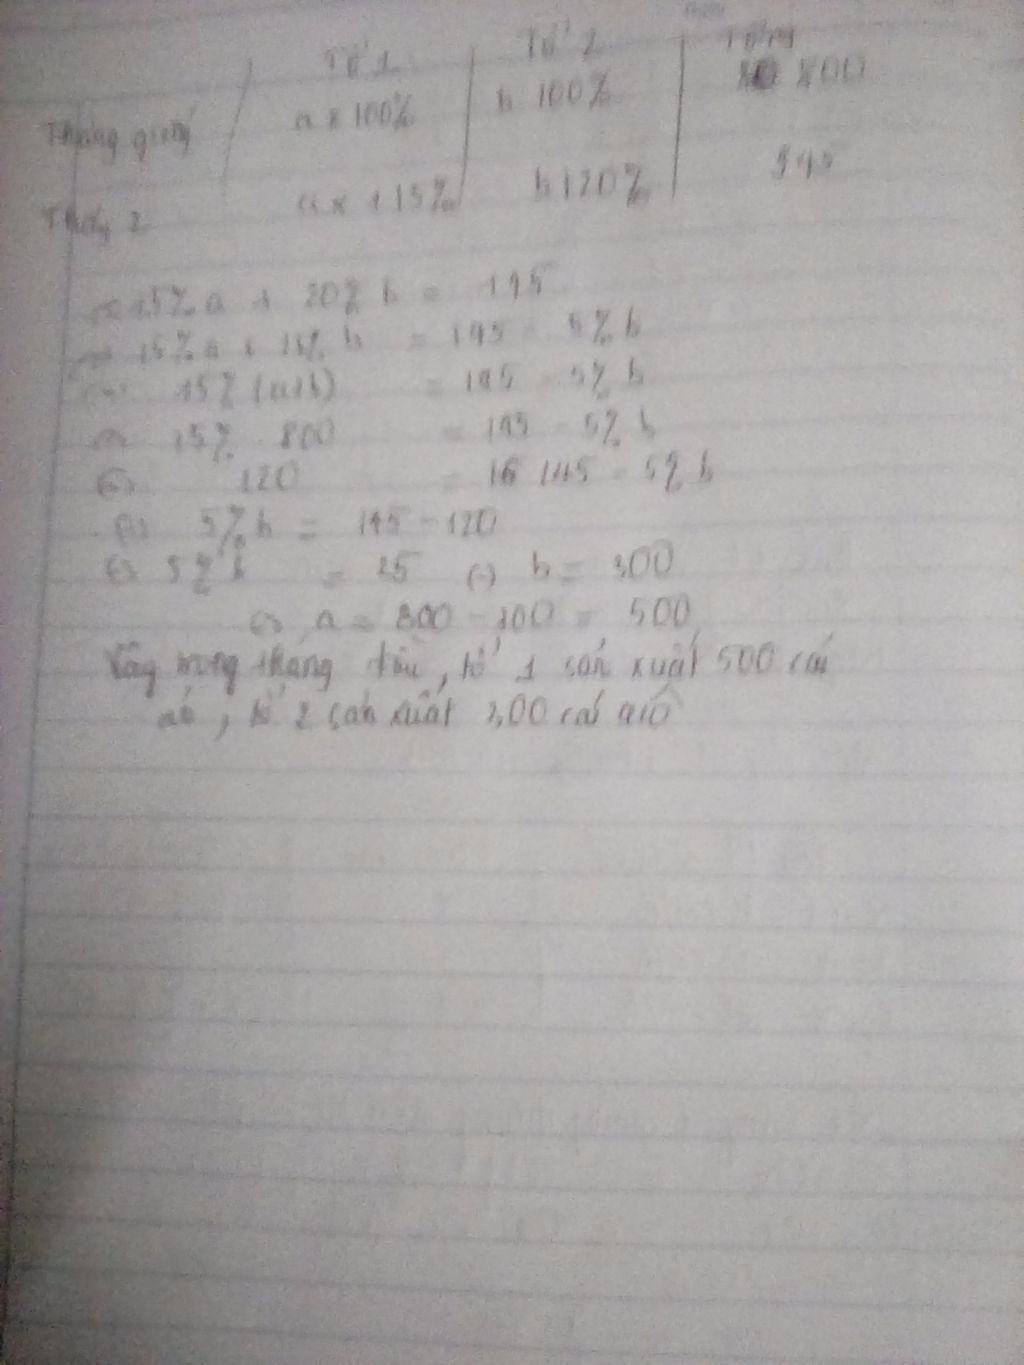 Tổ 1 Tổ 2 Tổng
Tháng giêng a x 100% b 100% 800
Tháng 2 a x 115% b 120% 945
15% a + 20% b = 145
15% a + 15% b = 145 - 5% b
15% (a+b) = 145 - 5% b
15% . 800 = 145 - 5% b
(=) 120 = 145 - 5% b
(=) 5% b = 145 - 120
(=) 5% b = 25 (=) b = 300
(=) a = 800 - 300 = 500
Vậy trong tháng đầu, tổ 1 sản xuất 500 cái
áo, tổ 2 sản xuất 300 cái